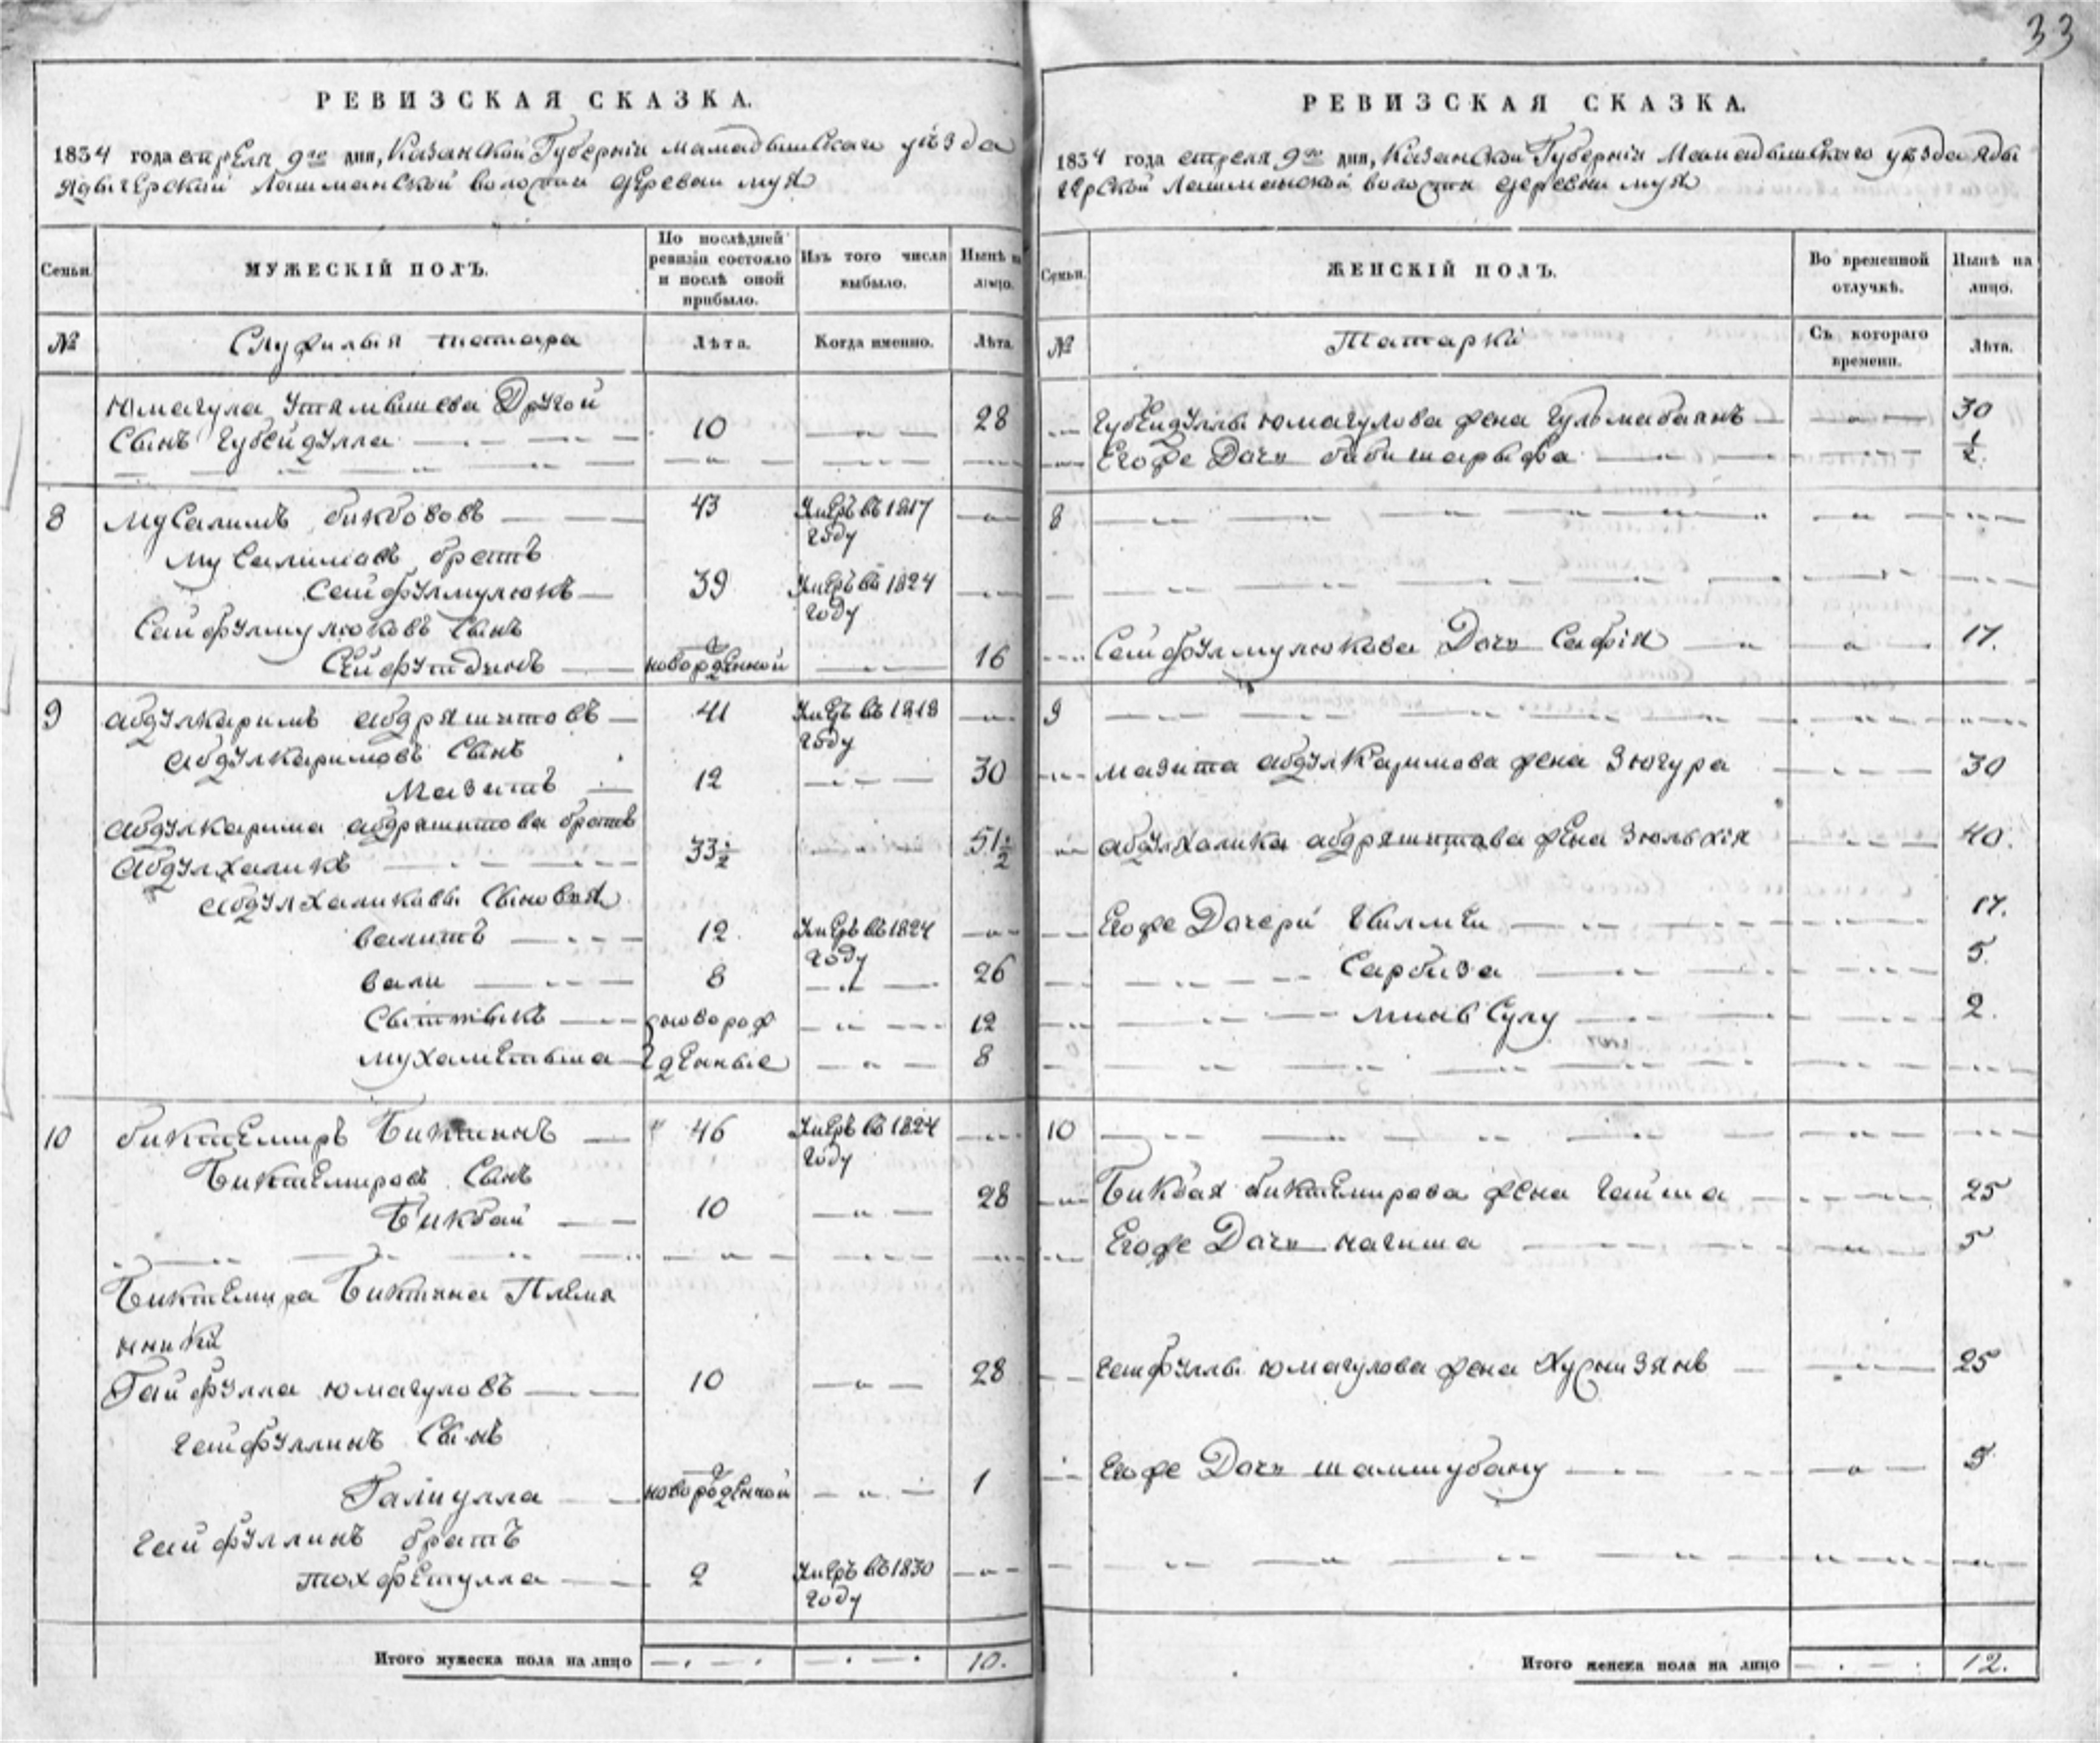 33
РЕВИЗСКАЯ СКАЗКА.
1834 года апреля 9го дня, Казанской Губернiи мамадышскаго уѣзда
ядыгерской Лашманской волости деревни
Семьи.
МУЖЕСКІЙ ПОЛЪ.
По послѣдней ревизіи состояло и послѣ оной прибыло.
Изъ того числа выбыло.
Нынѣ на лицо.
№
Служилыя татара
Лѣта.
Когда именно.
Лѣта.
Юмагула Утямышева Другой
Сынъ Губейдулла 10 28
8 Мусалимъ бикбовъ 43 Умеръ въ 1817 году
Мусалимовъ братъ
Сейфулмулюкъ 39 Умеръ въ 1824 году
Сайфулмулюковъ Сынъ
Сейфутдинъ новорожденной 16
9 абдулкаримъ абдряшитовъ 41 Умеръ въ 1818 году
абдулкаримовъ Сынъ
Мазитъ 12 30
абдулкарима абдряшитова братъ
абдулхаликъ 33½ 51½
абдулхаликовы Сыновья
валитъ 12 Умеръ въ 1824 году
вали 8 26
Сытдыкъ новорож 12
мухаметьша денные 8
10 биктемиръ Биктинъ 46 Умеръ въ 1824 году
Биктемировъ Сынъ
Бикбай 10 28
Биктемира Биктина Племя
нники
Гайфулла юмагуловъ 10 28
гайфуллинъ Сынъ
Галиулла новорожденной 1
гайфуллинъ братъ
тохфетулла 2 Умеръ въ 1830 году
Итого мужеска пола на лицо 10.
РЕВИЗСКАЯ СКАЗКА.
1834 года апреля 9го дня, Казанской Губернiи Мамадышскаго уѣзда яды
герской Лашманской волости деревни
Семьи.
ЖЕНСКІЙ ПОЛЪ.
Во временной отлучкѣ.
Нынѣ на лицо.
№
Татарки
Съ котораго времени.
Лѣта.
губейдуллы юмагулова жена гульмабаянъ 30
Егоже Дочь бибишарыфа ½
8
Сейфулмулюкова Дочь Сафiя 17.
9
мазита абдулкаримова жена Зюгура 30
абдулхалика абдряшитова жена Зюльхiя 40.
Егоже Дочери 17.
Сарбиза 5.
минь Сулу 2.
10
Бикбая биктемирова жена гайша 25
Егоже Дочь нагима 5
гайфуллы юмагулова жена Хуснизянъ 25
Егоже Дочь шамшубану 5
Итого женска пола на лицо 12.